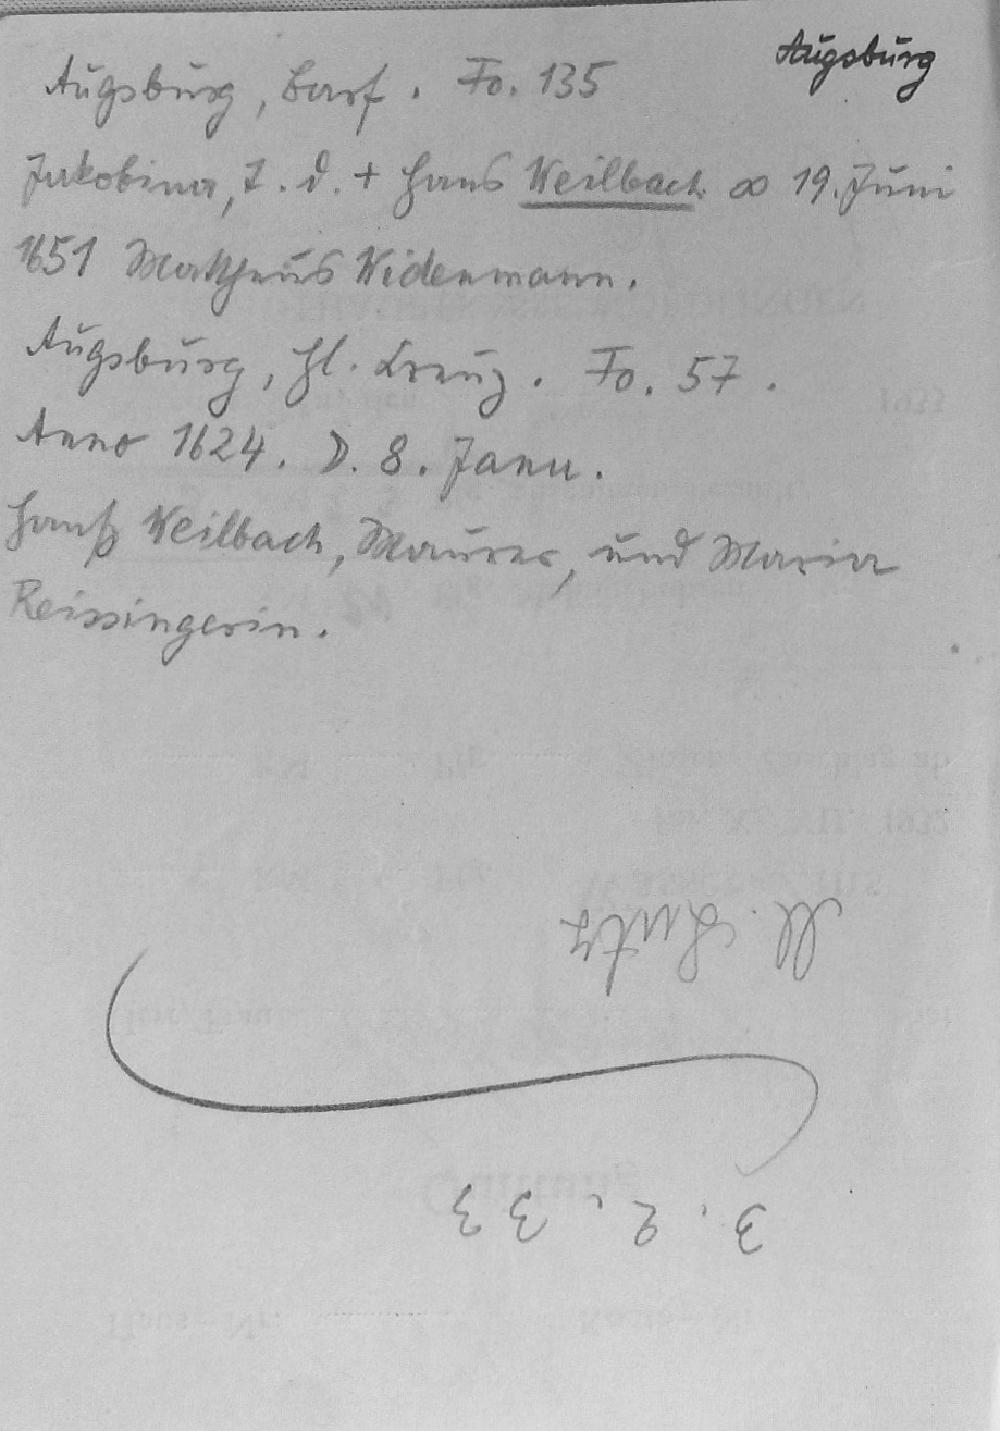 Augsburg
Augsburg, Barf. Fo. 135
Jakobina, T. d. + Hans Weilbach ∞ 19. Juni
1651 Matthäus Widenmann.
Augsburg, Hl. Kreuz. Fo. 57.
Anno 1624. D. 8. Janu.
Hanß Weilbach, Maurer, und Maria
Reissingerin.
M. Lutz
3. 2. 33